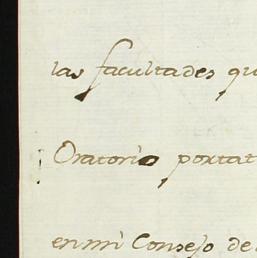 las facultades qu
Oratorio portat
en mi Consejo de